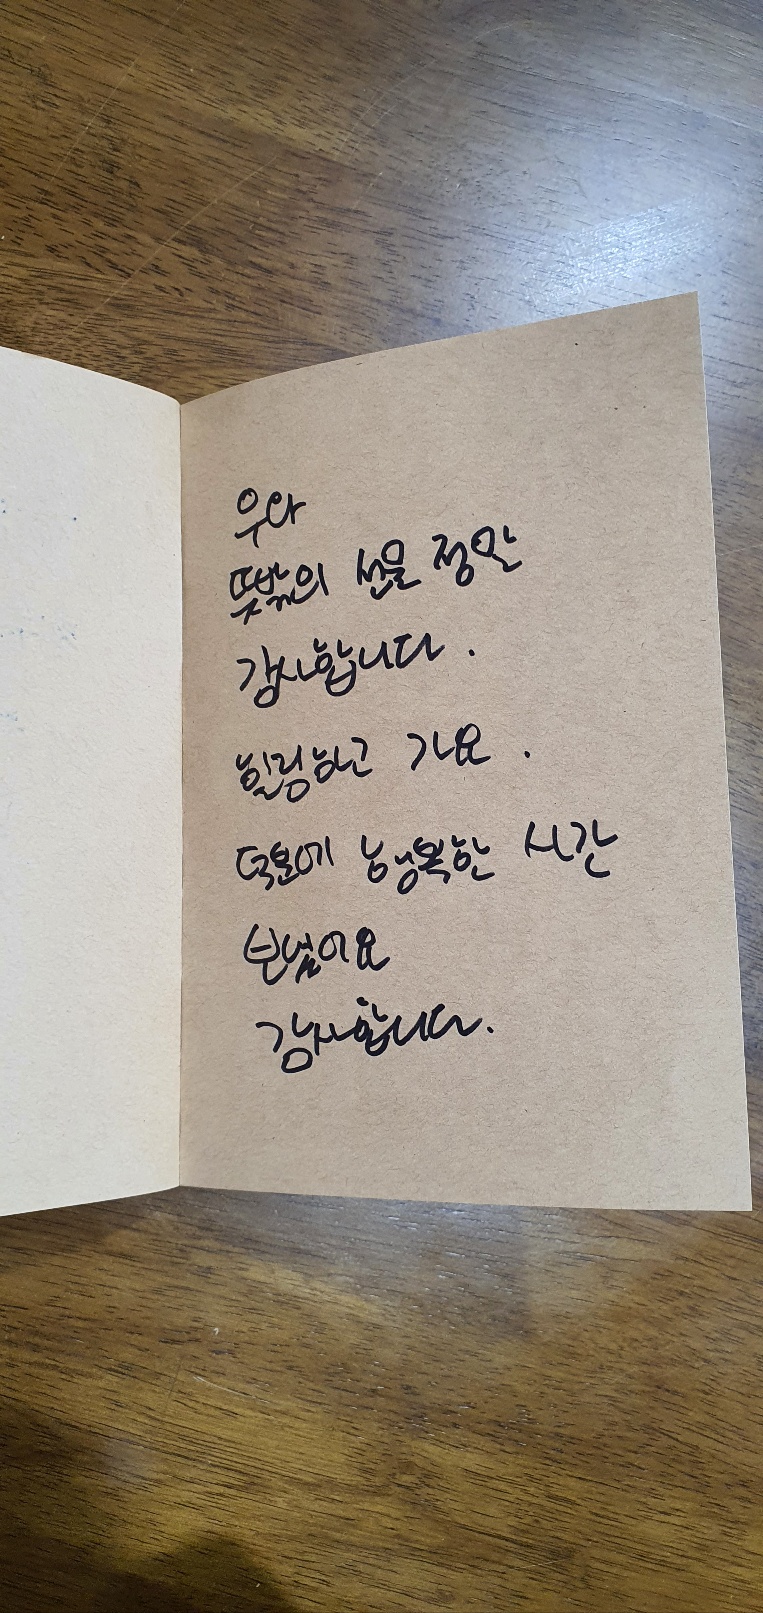 우와
뜻밖의 선물 정말
감사합니다.
힐링하고 가요.
덕분에 행복한 시간
보냈어요
감사합니다.